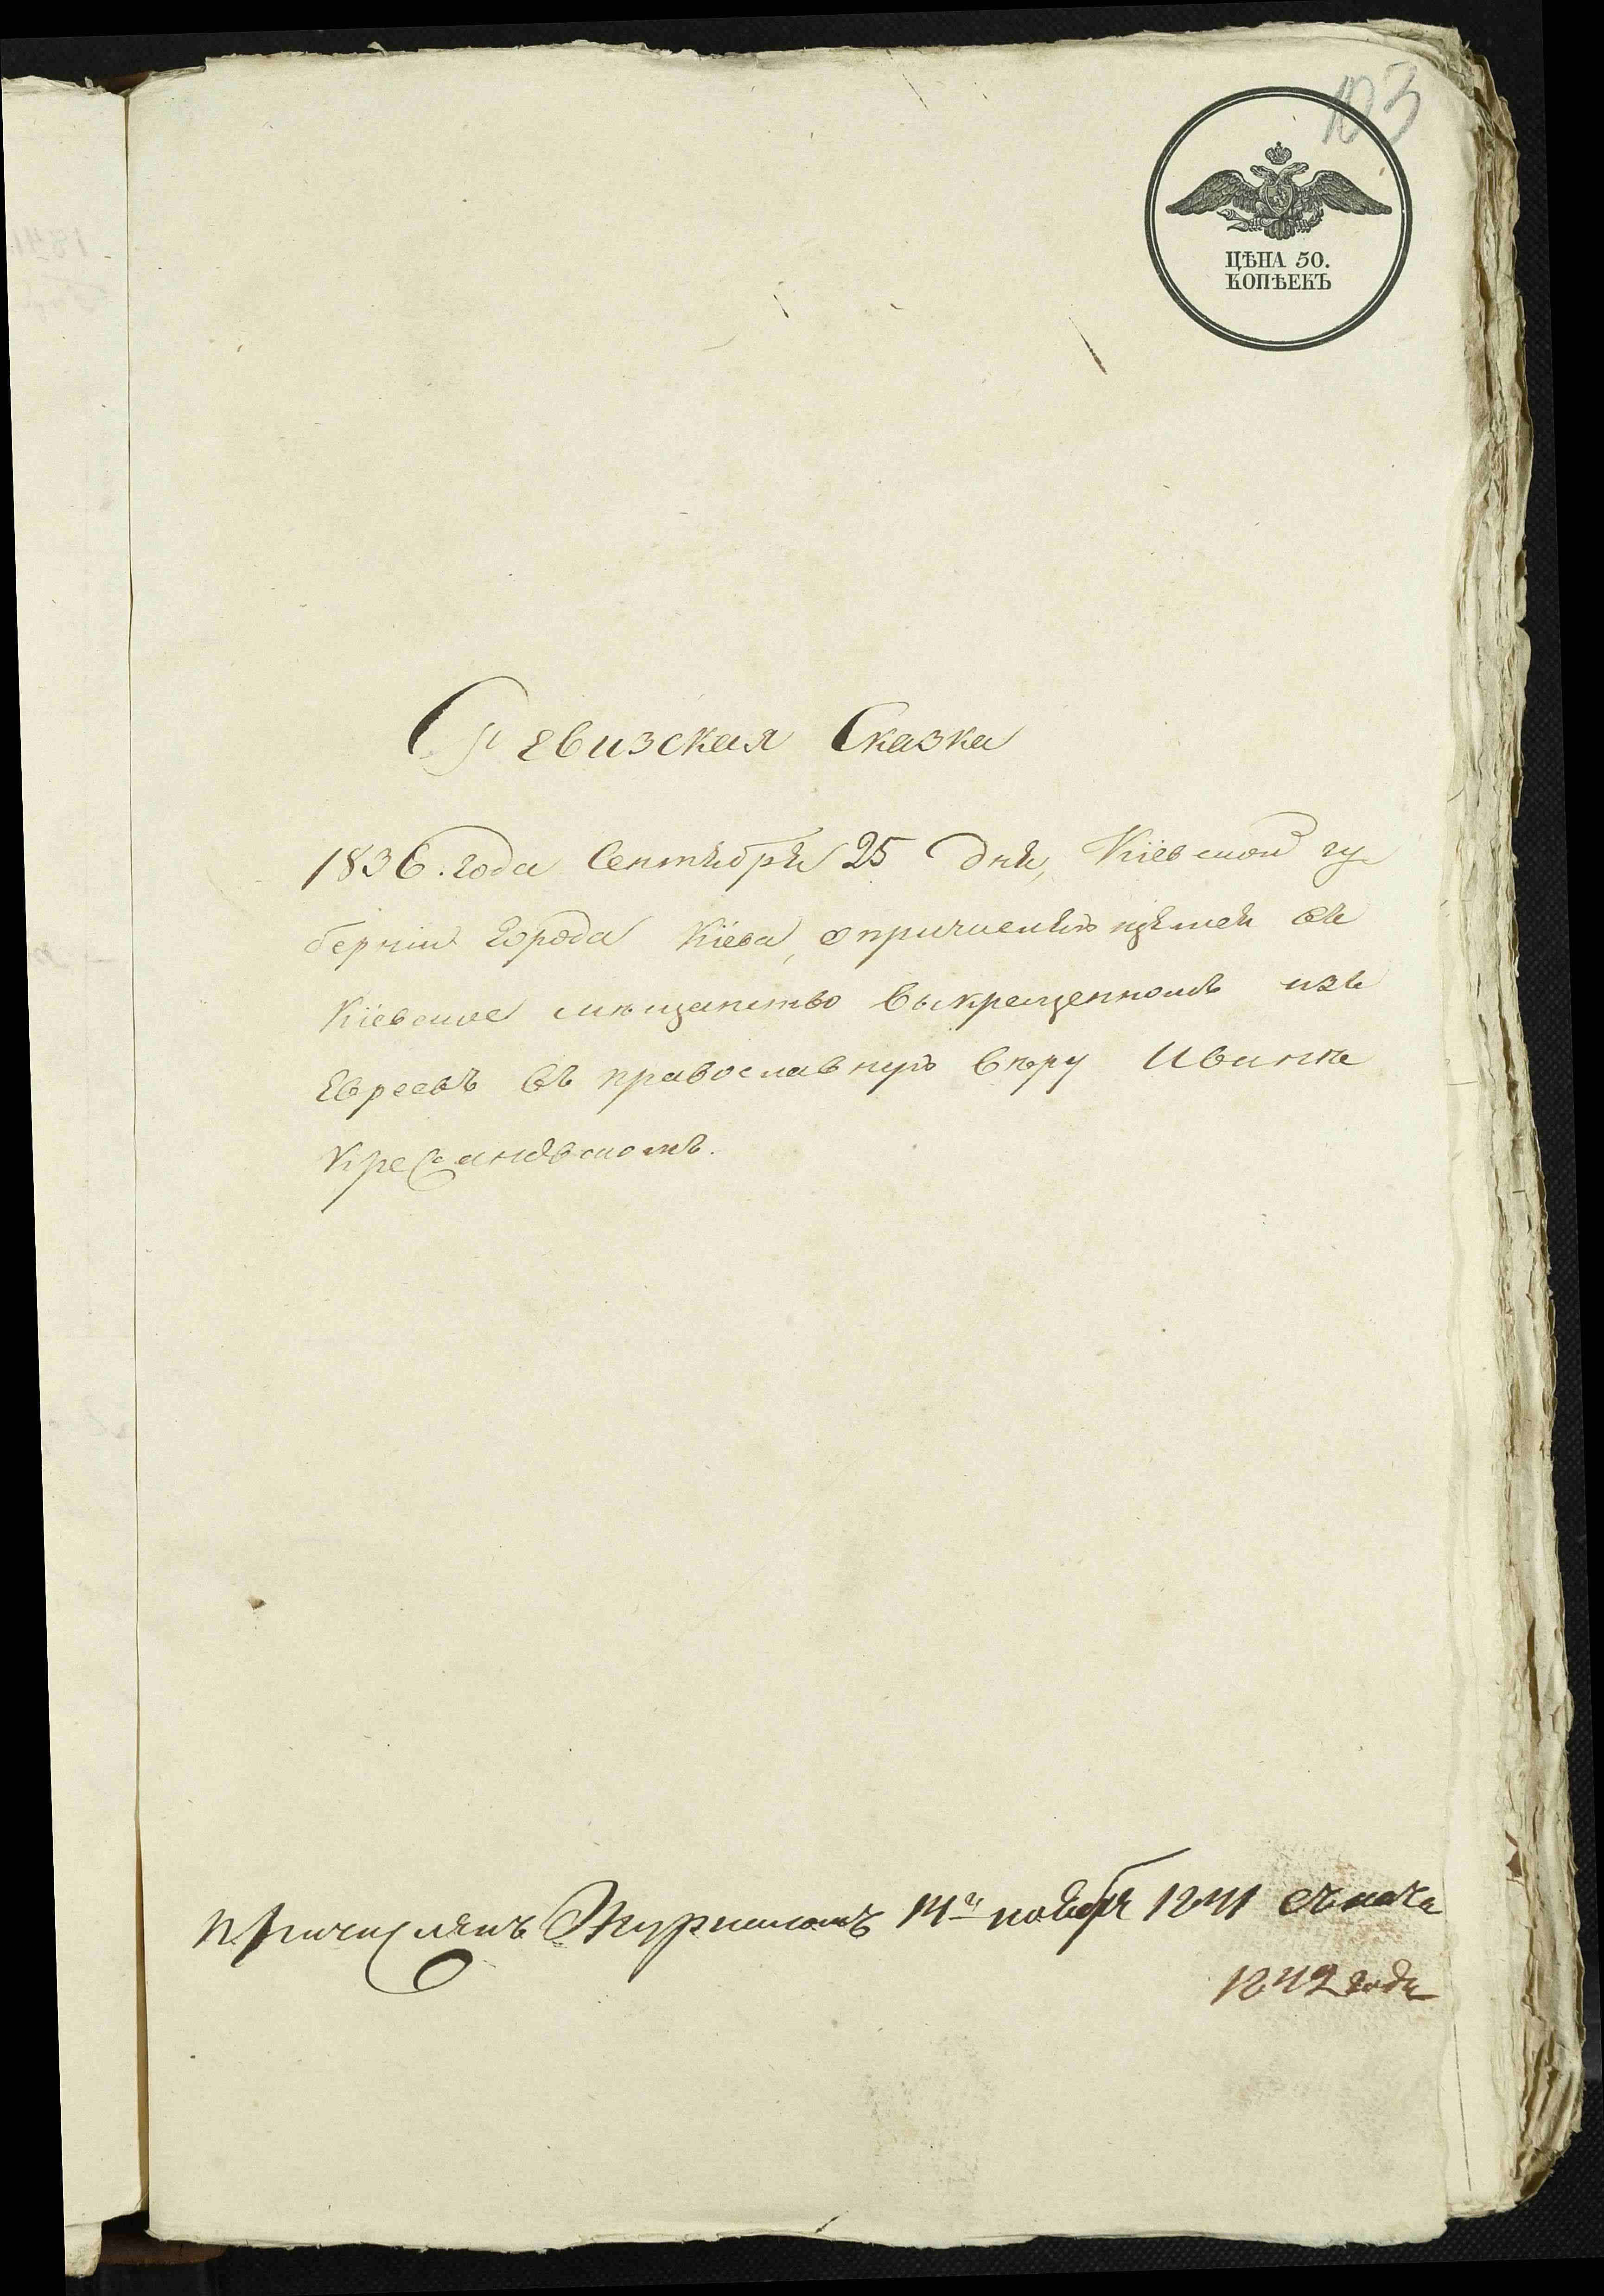 103
ЦѢНА 50.
КОПѢЕКЪ
Ревизская Сказка
1836. года Сентября 25 дня, Кіевской гу
берніи города Кіева, о причисляющемся въ
Кіевское мѣщанство выкрещенномъ изъ
Евреевъ въ православную вѣру Иванѣ
Причисленъ Журналомъ 14го ноября 1841 съ нача
1842 года